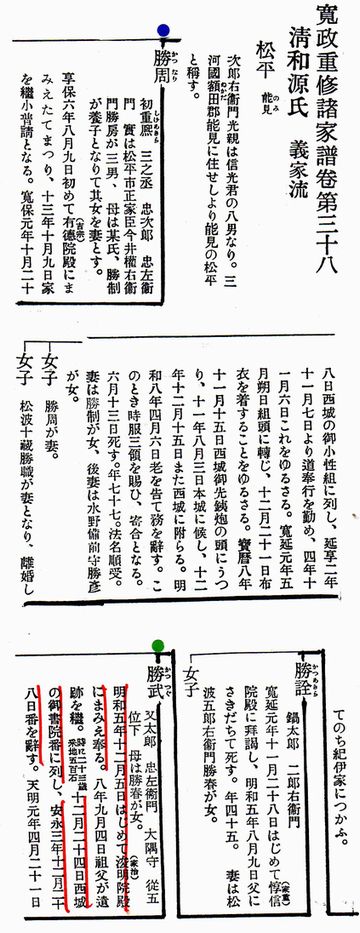 寬政重修諸家譜卷第三十八
淸和源氏 義家流
松平 能見
のみ
次郎右衞門光親は信光君の八男なり。三
河國額田郡能見に住せしより能見の松平
ぬかだ
と稱す。
勝周
かつなり
初重庶 三之丞 忠次郎 忠左衞
しげちか
門 實は松平市正家臣今井權右衞
門勝房が三男、母は某氏、勝制
が養子となりて其女を妻とす。
享保六年八月九日初めて有德院殿にま
(吉宗)
みえたてまつり、十三年十月九日家
を繼小普請となる。寬保元年十月二十
八日西城の御小性組に列し、延享二年
十一月七日より道奉行を勤め、四年十
一月六日これをゆるさる。寬延元年五
月朔日組頭に轉じ、十二月二十一日布
衣を着することをゆるさる。寶曆八年
十一月十五日西城御先鐵炮の頭にうつ
り、十一年八月三日本城に候し、十二
年十二月十五日また西城に附らる。明
和八年四月六日老を告て務を辭す。こ
のとき時服三領を賜ひ、寄合となる。
六月十三日死す。年七十七。法名順受。
妻は勝制が女、後妻は水野備前守勝彥
が女。
女子 勝周が妻。
女子 松波十藏勝職が妻となり、離婚し
てのち紀伊家につかふ。
勝詮
かつあきら
鍋太郎 二郎右衞門
寬延元年十一月二十八日はじめて惇信
(家重)
院殿に拜謁し、明和五年八月九日父に
さきだちて死す。年四十五。妻は松
波五郎右衞門勝春が女。
女子
勝武
かつつぐ
又太郎 忠左衞門 大隅守 從五
位下 母は勝春が女。
明和五年十二月五日はじめて浚明院殿
(家治)
にまみえ奉る。八年九月四日祖父が遺
跡を繼。時に三十三歲采地五百石 十二月二十四日西城
の御書院番に列し、安永三年十二月二十
八日番を辭す。天明元年四月二十一日